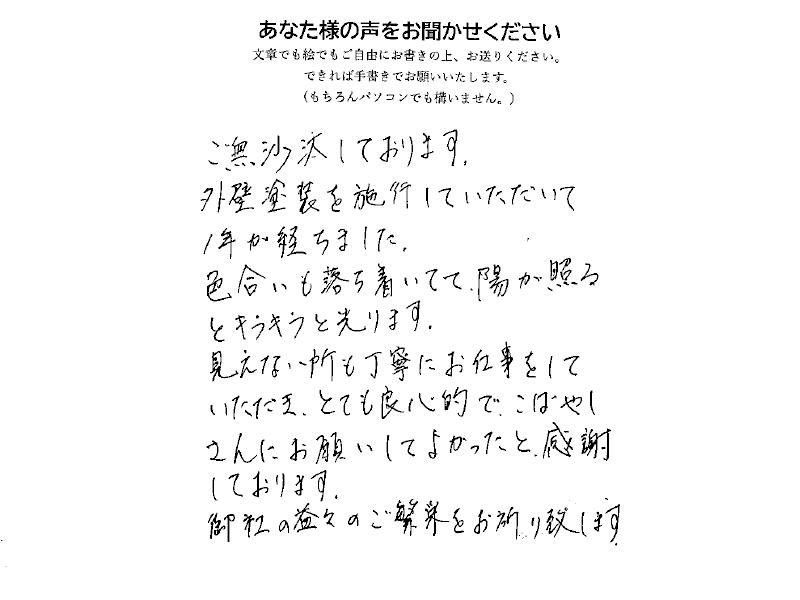 あなた様の声をお聞かせください
文章でも絵でもご自由にお書きの上、お送りください。
できれば手書きでお願いいたします。
（もちろんパソコンでも構いません。）
ご無沙汰しております。
外壁塗装を施行していただいて
1年が経ちました。
色合いも落ち着いてて、陽が照る
とキラキラと光ります。
見えない所も丁寧にお仕事をして
いただき、とても良心的で、こばやし
さんにお願いしてよかったと、感謝
しております。
御社の益々のご繁栄をお祈り致します